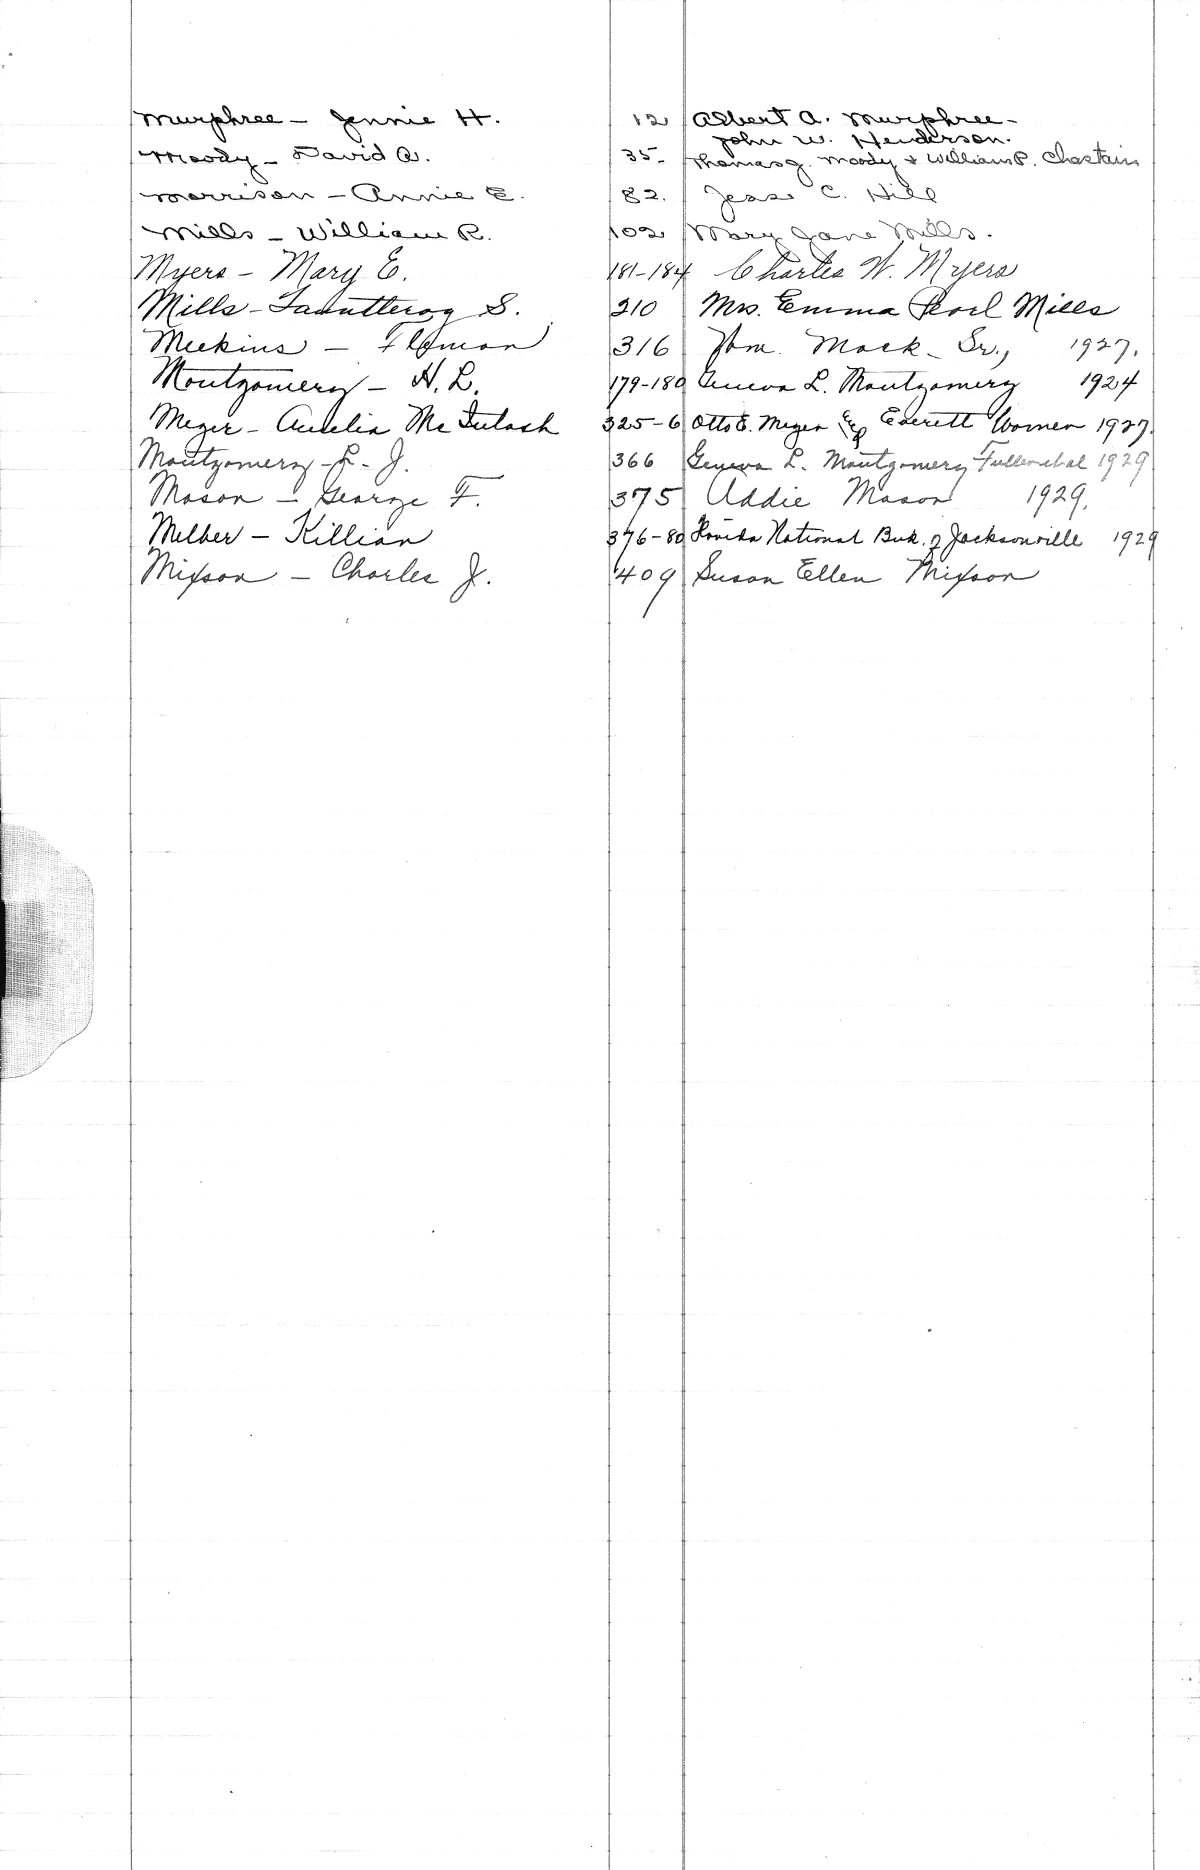 Murphree - Jennie H. 12 Albert A. Murphree -
John W. Henderson.
Moody - David A. 35- Thomas J. Moody & William P. Chastain
Morrison - Annie E. 82. Jesse C. Hill
Mills - William R. 102 Mary Jane Mills.
Myers - Mary E. 181-184 Charles W. Myers
Mills - S. 210 Mrs. Emma Pearl Mills
Meekins - 316 Mack - Sr., 1927.
Montgomery - H. L. 179-180 Geneva L. Montgomery 1924
Meyer - Aurelia McIntosh 325-6 Otto E. Meyer Everett 1927.
Montgomery - L. J. 366 Geneva L. Montgomery 1929
Mason - George F. 375 Addie Mason 1929.
Melber - Killian 376-80 Florida National Bnk. of Jacksonville 1929
Mixson - Charles J. 409 Susan Ellen Mixson